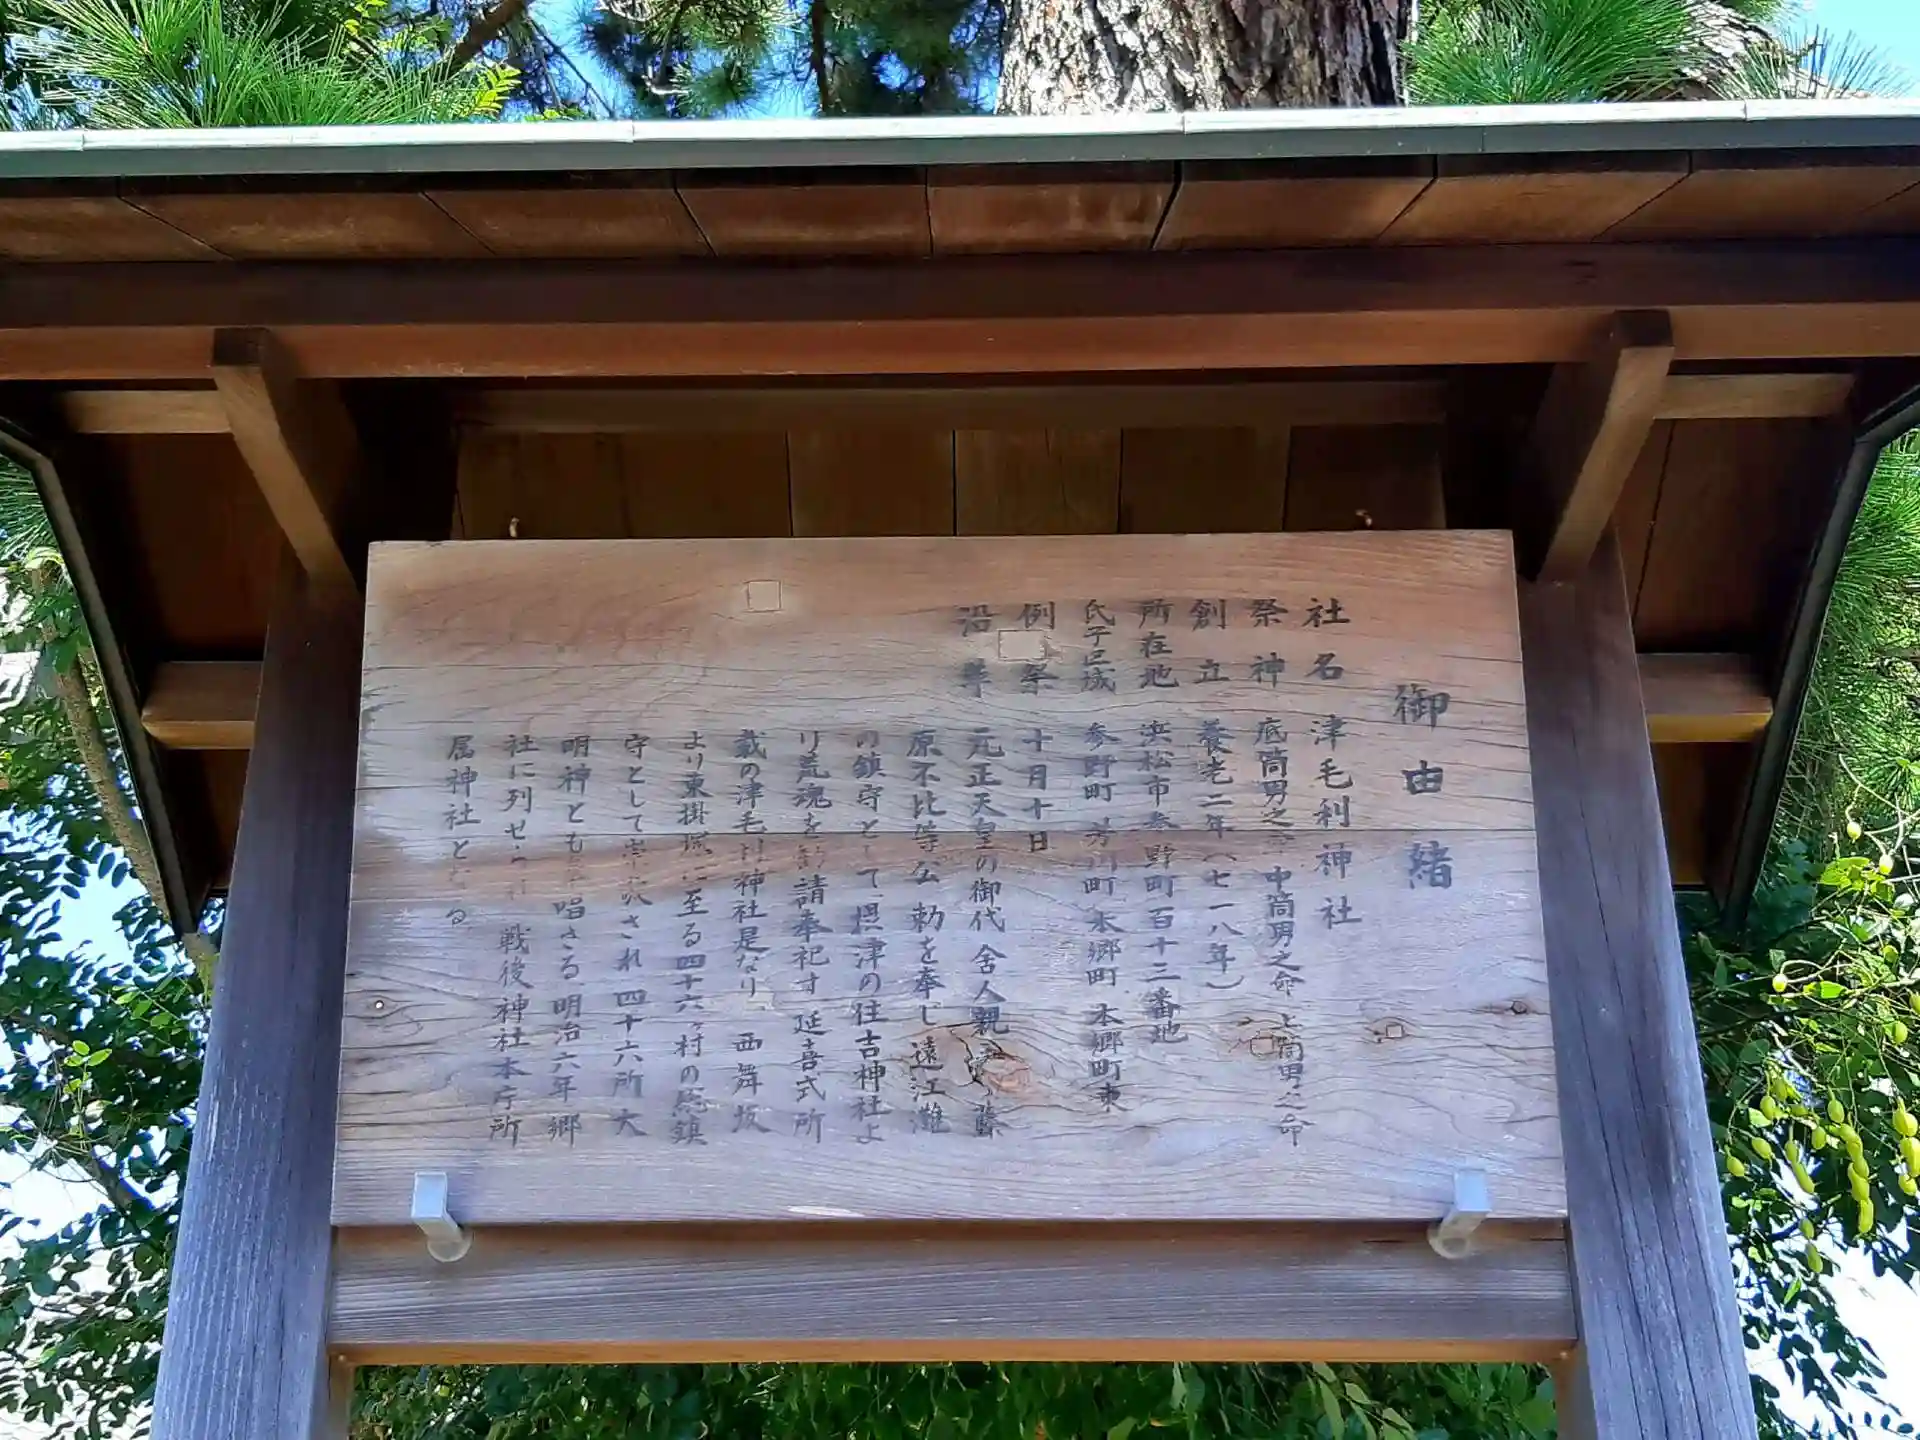 御由緒
社名 津毛利神社
祭神 底筒男之命 中筒男之命 上筒男之命
創立 養老二年(七一八年)
所在地 浜松市参野町百十三番地
氏子区域 参野町 芳川町 本郷町 本郷町東
例祭 十月十日
沿革 元正天皇の御代 舍人親王 藤
原不比等公 勅を奉じ 遠江灘
の鎮守として摂津の住吉神社よ
り荒魂を勧請奉祀す 延喜式所
載の津毛利神社是なり、西舞坂
より東掛塚に至る四十六ヶ村の総鎮
守として崇敬され 四十六所大
明神とも 唱さる 明治六年郷
社に列せられ 戦後神社本庁所
属神社となる